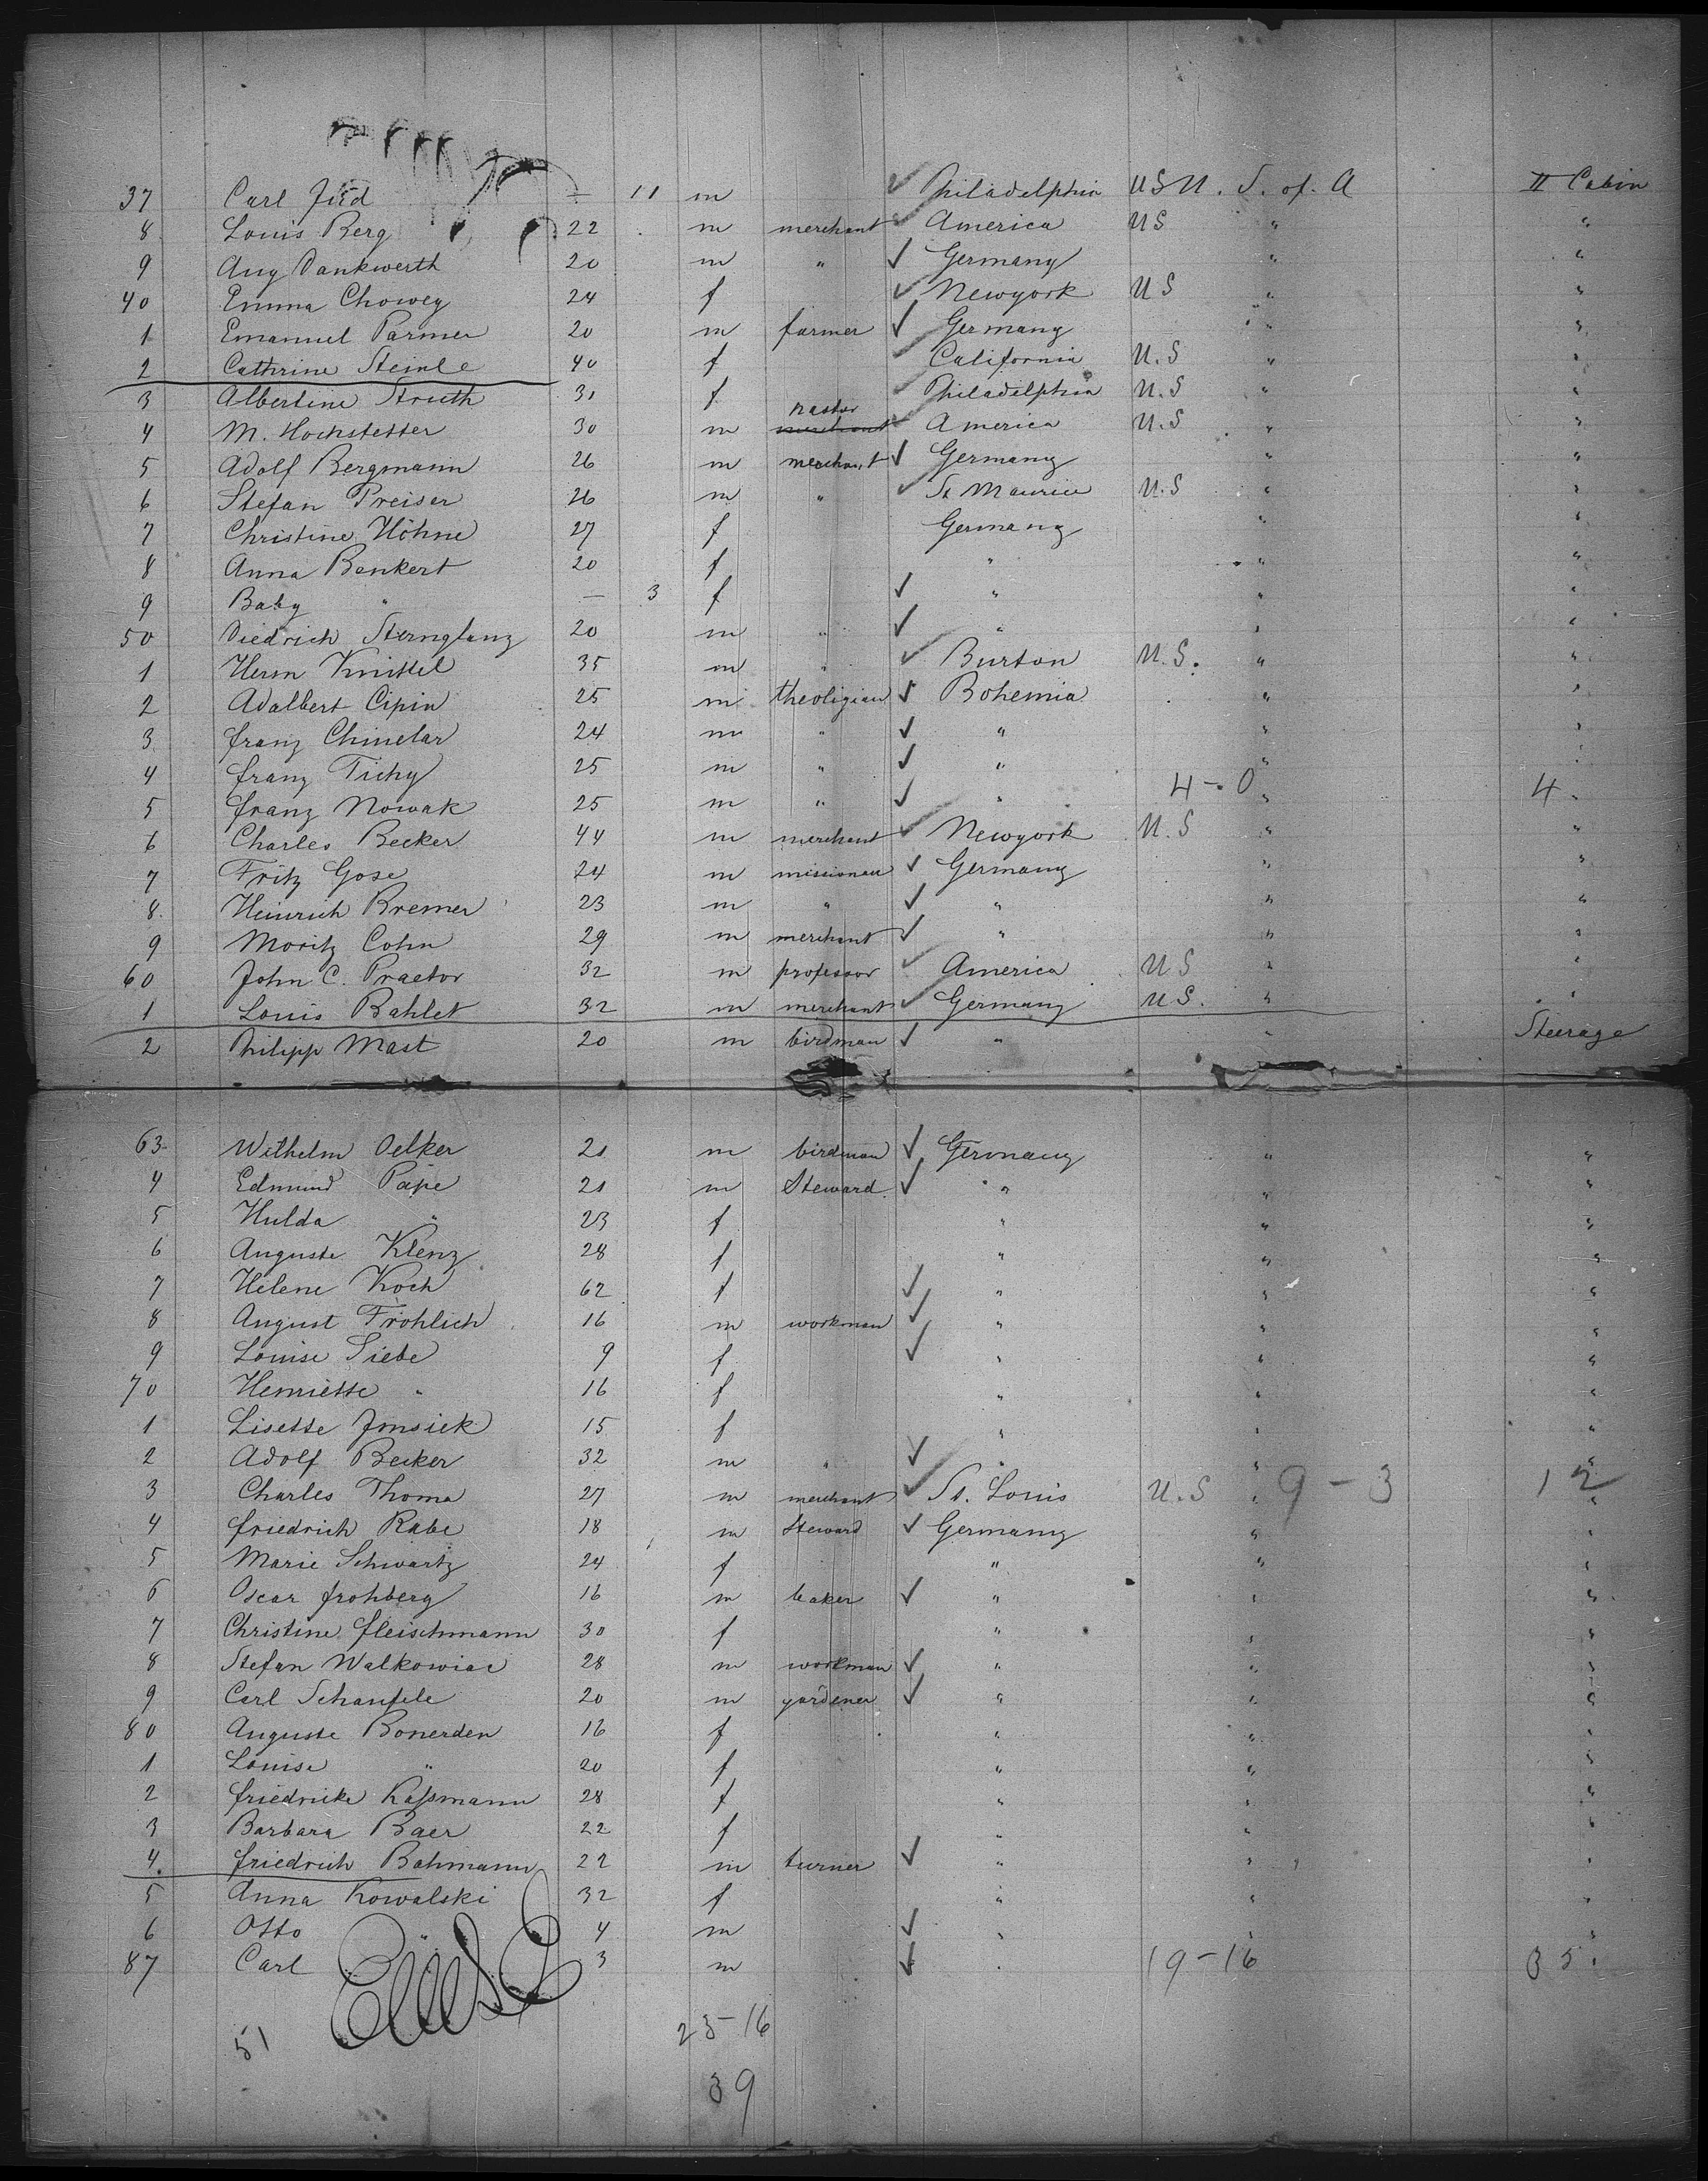 37 Carl Jüd — 11 m Philadelphia U S U. S. of. A II Cabin
8 Louis Berg 22 m merchant America U S " "
9 Aug Dankwerth 20 m " Germany " "
40 Emma Chowey 24 f Newyork U S " "
1 Emanuel Parmer 20 m farmer Germany " "
2 Cathrine Steinle 40 f California U.S " "
3 Albertine Struth 31 f Philadelphia U.S " "
pastor
4 M. Hochstetter 30 m merchant America U.S " "
5 Adolf Bergmann 26 m merchant Germany " "
6 Stefan Preiser 26 m " St Maurice U.S " "
7 Christine Höhne 27 f Germany " "
8 Anna Benkert 20 f " " "
9 Baby " — 3 f " " "
50 Diedrich Sternglanz 20 m " " " "
1 Herm Knittel 35 m " Burton U.S. " "
2 Adalbert Cipin 25 m theoligian Bohemia " "
3 Franz Chmelar 24 m " " " "
4 Franz Tichy 25 m " " " "
5 Franz Nowak 25 m " " 4-0 " 4
6 Charles Becker 44 m merchant Newyork U.S " "
7 Fritz Gose 24 m missionau Germany " "
8 Heinrich Bremer 23 m " " " "
9 Moritz Cohn 29 m merchant " " "
60 John C. Praetor 32 m professor America U S " "
1 Louis Bahlet 32 m merchant Germany U S. " "
2 Philipp Mast 20 m birdman " " Steerage
63 Wilhelm Oelker 21 m birdman Germany " "
4 Edmund Pape 21 m Steward " " "
5 Hulda " 23 f " " "
6 Auguste Klenz 28 f " " "
7 Helene Koch 62 f " " "
8 August Fröhlich 16 m workman " " "
9 Louise Siebe 9 f " " "
70 Henriette " 16 f " " "
1 Lisette Jmsiek 15 f " " "
2 Adolf Becker 32 m " " " "
3 Charles Thoma 27 m merchant St. Louis U.S " 9-3 12
4 Friedrich Rabe 18 m Steward Germany " "
5 Marie Schwartz 24 f " " "
6 Oscar Frohberg 16 m baker " " "
7 Christine Fleischmann 30 f " " "
8 Stefan Walkowiac 28 m workman " " "
9 Carl Schaufele 20 m gardener " " "
80 Auguste Bonerden 16 f " " "
1 Louise " 20 f " " "
2 Friedricke Kaßmann 28 f " " "
3 Barbara Baer 22 f " " "
4. Friedrich Bahmann 22 m turner " " "
5 Anna Kowalski 32 f " " "
6 Otto " 4 m " " "
87 Carl " 3 m " 19-16 35
51 23-16
39